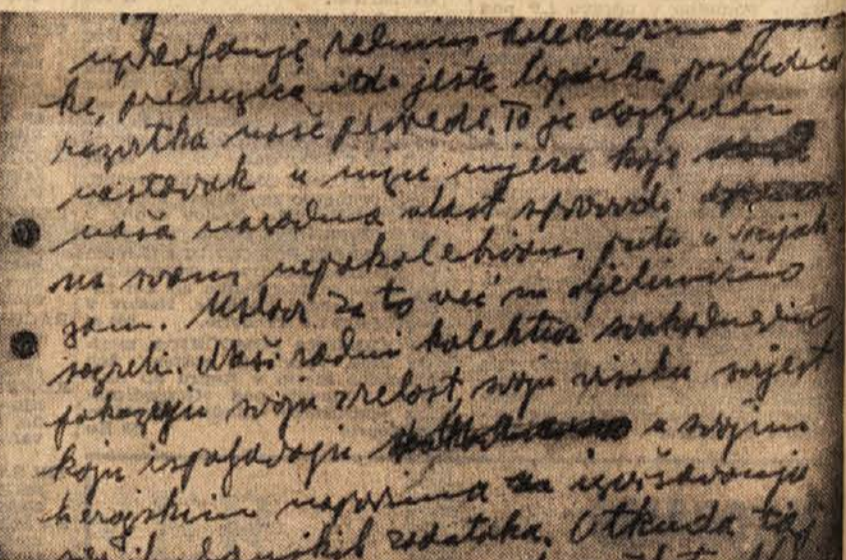 upravljanje radnim kolektivima
ke, preduzeća itd. jeste logička posljedica
razvitka naše privrede. To je dosljedan
nastavak u nizu mjera koje
naša narodna vlast sprovodi
na svom nepokolebivom putu u socijali
zam. Uslovi za to već su djelimično
sazreli. Naši radni kolektivi svakodnevno
pokazuju svoju zrelost, svoju visoku svijest
koju ispoljavaju u svojim
herojskim naporima za izvršavanje
zadataka. Otkuda ta